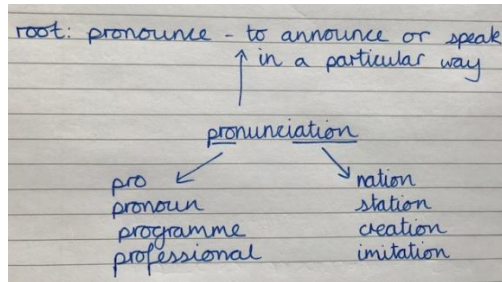 root: pronounce - to announce or speak
in a particular way
pronunciation
pro
pronoun
programme
professional
nation
station
creation
imitation